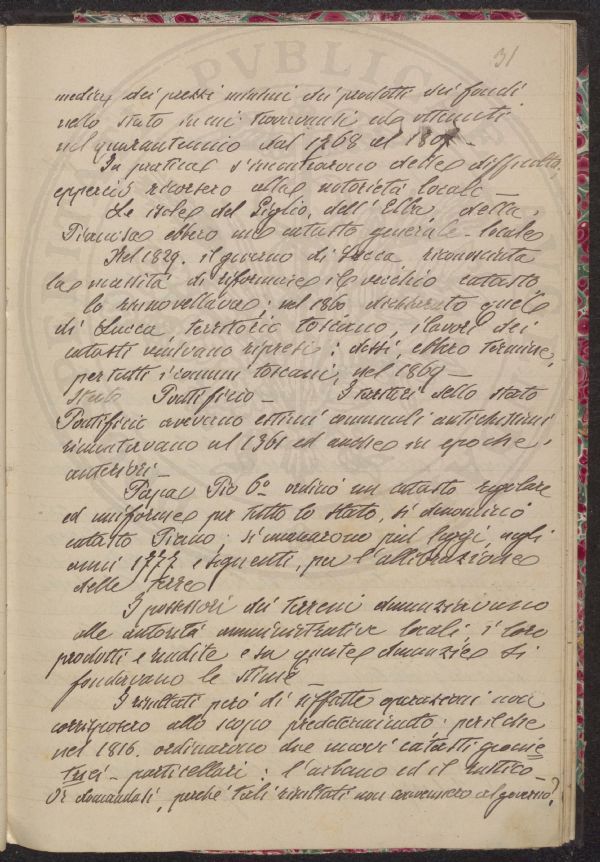 31
media dei prezzi minimi dei prodotti dei fondi
nello stato in cui trovavansi ed ottenuti
nel quarantennio dal 1768 al 1807.
In pratica s'incontrarono delle difficoltà,
epperciò ricorsero alla notorietà locale —
Le isole del Giglio, dell'Elba, della
Pianosa ebbero un catasto generale locale
Nel 1829. il governo di Lucca riconosciuta
la necessità di riformare il vecchio catasto
lo rinnovellava; nel 1860 dichiarato quel
di Lucca territorio toscano, i lavori dei
catasti venivano ripresi; dessi, ebbero termine,
per tutti i comuni toscani, nel 1869 —
Stato Pontificio — I territori dello stato
Pontificio avevano estimi comunali antichissimi
rimontavano al 1361 ed anche in epoche
anteriori —
Papa Pio 6º ordinò un catasto regolare
ed uniforme per tutto lo Stato, si denominò
catasto Piano; si emanarono più leggi, negli
anni 1777 e seguenti, per l'allibrazione
delle terre
I possessori dei terreni denunziavano
alle autorità amministrative locali, i loro
prodotti e rendite e su queste denunzie si
fondavano le stime —
I risultati però di siffatte operazioni non
corrisposero allo scopo predeterminato; perilchè
nel 1816. ordinarono due nuovi catasti geome=
trici — particellari: l'urbano ed il rustico —
Or domandasi, perchè tali risultati non convennero al governo?
PVBLIC